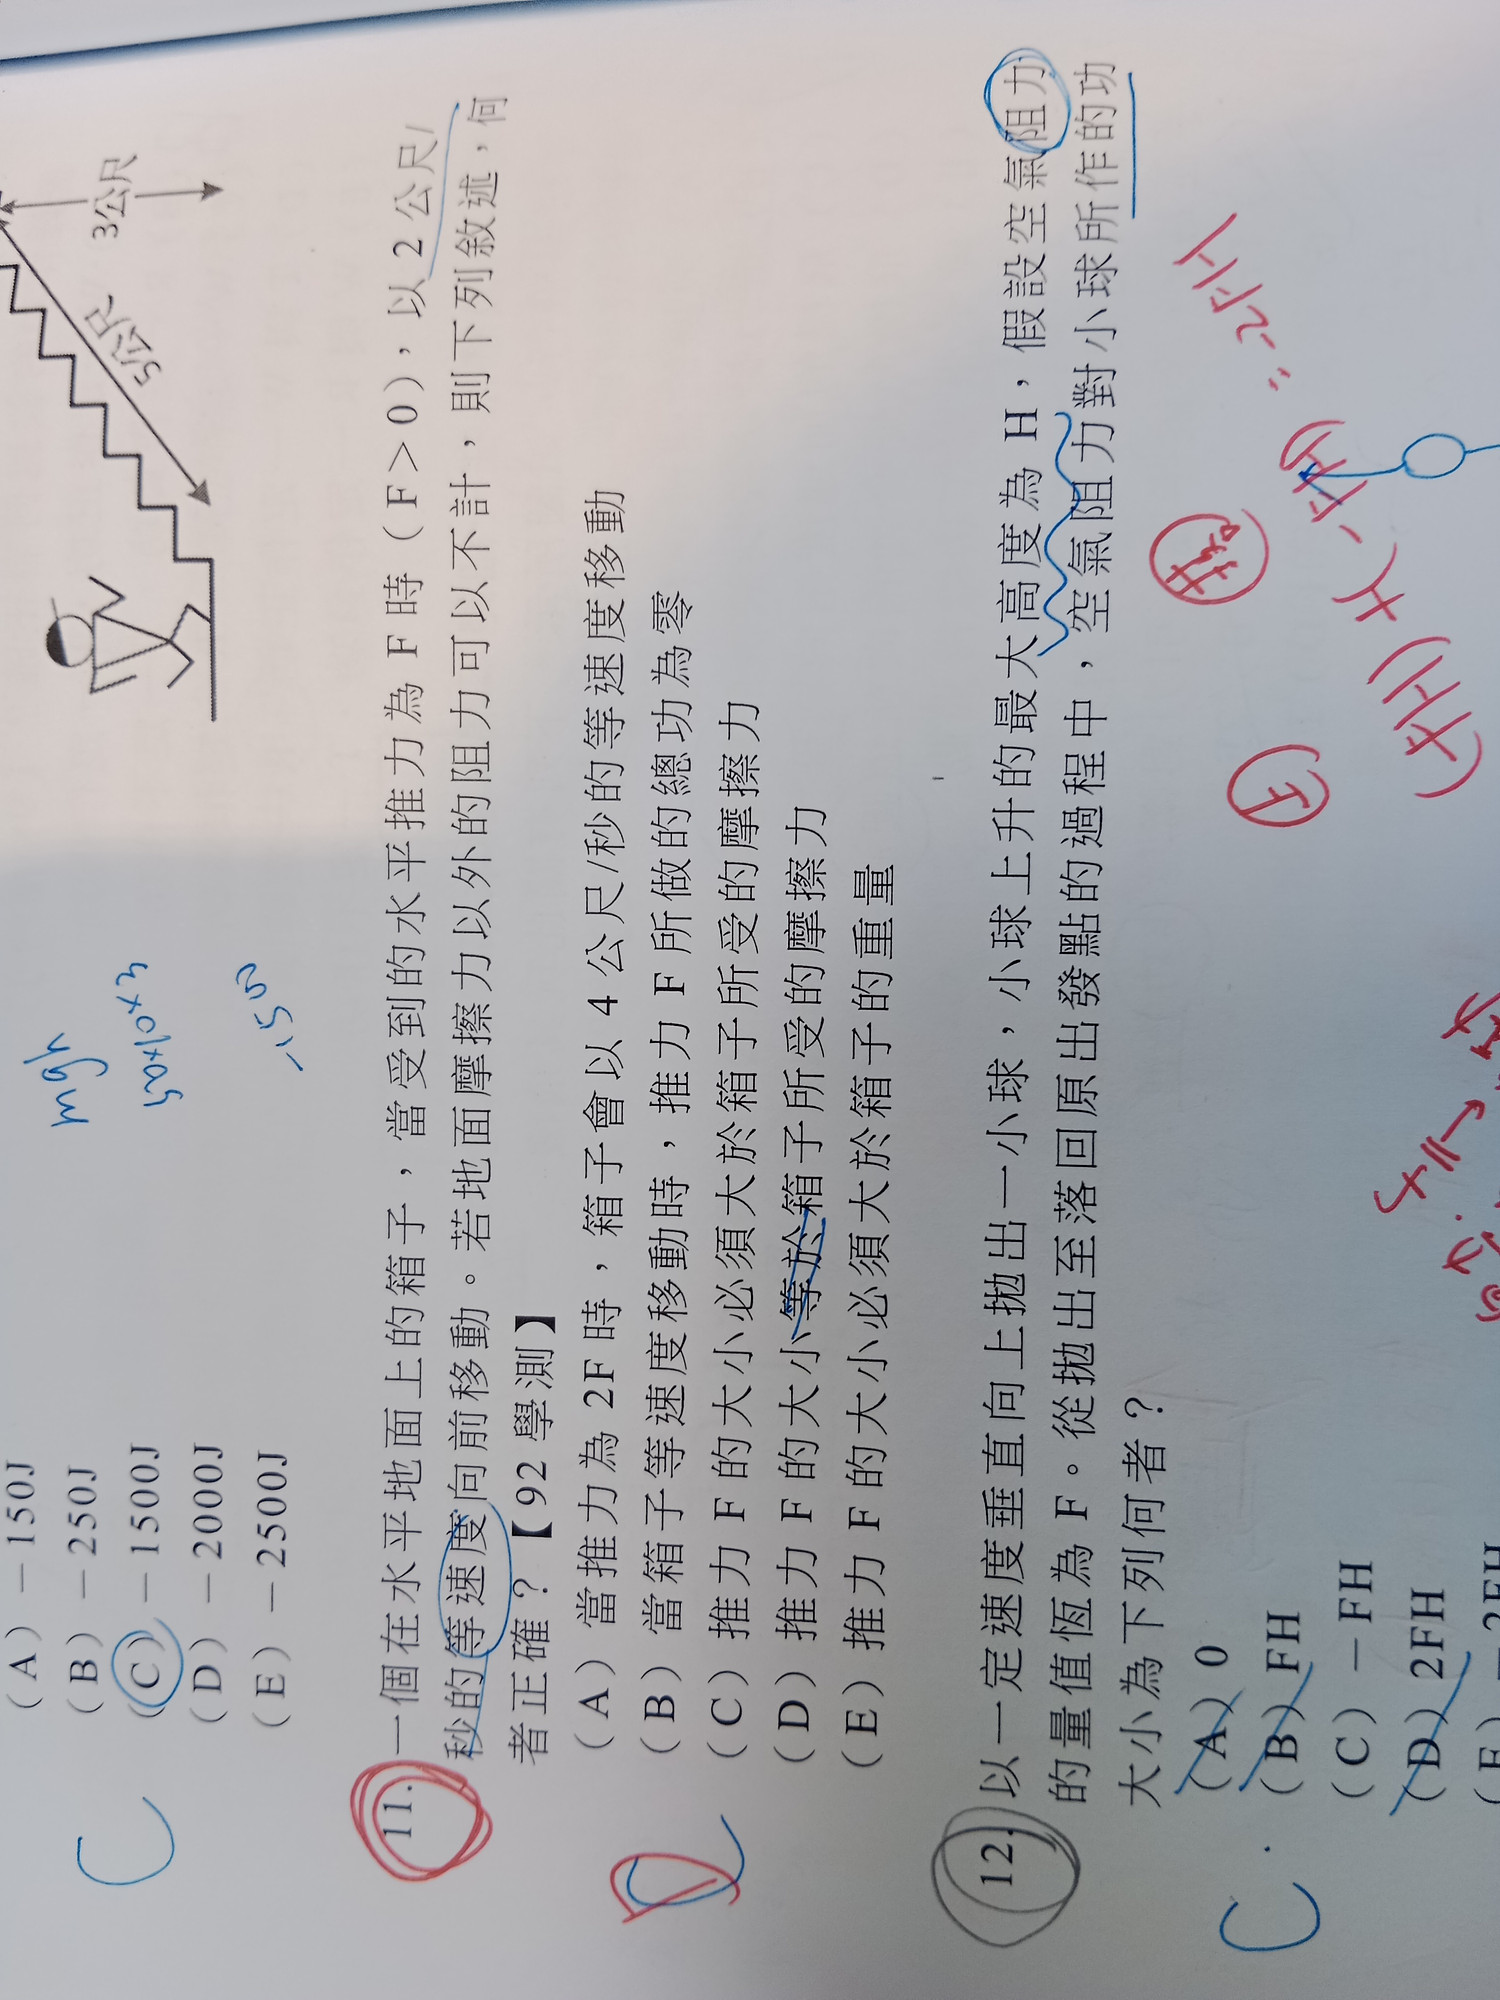 5公尺
3公尺
(A)－150J
(B)－250J
(C)－1500J
(D)－2000J
(E)－2500J
mgh
50×10×3
-1500
C
11. 一個在水平地面上的箱子，當受到的水平推力為 F 時（F＞0），以 2 公尺/
秒的等速度向前移動。若地面摩擦力以外的阻力可以不計，則下列敘述，何
者正確？【92 學測】
(A) 當推力為 2F 時，箱子會以 4 公尺/秒的等速度移動
(B) 當箱子等速度移動時，推力 F 所做的總功為零
(C) 推力 F 的大小必須大於箱子所受的摩擦力
(D) 推力 F 的大小等於箱子所受的摩擦力
(E) 推力 F 的大小必須大於箱子的重量
12. 以一定速度垂直向上拋出一小球，小球上升的最大高度為 H，假設空氣阻力
的量值恆為 F。從拋出至落回原出發點的過程中，空氣阻力對小球所作的功
大小為下列何者？
(A) 0
(B) FH
(C)－FH
(D) 2FH
(E)－2FH
C
F
(-FH)+(-FH) = -2FH